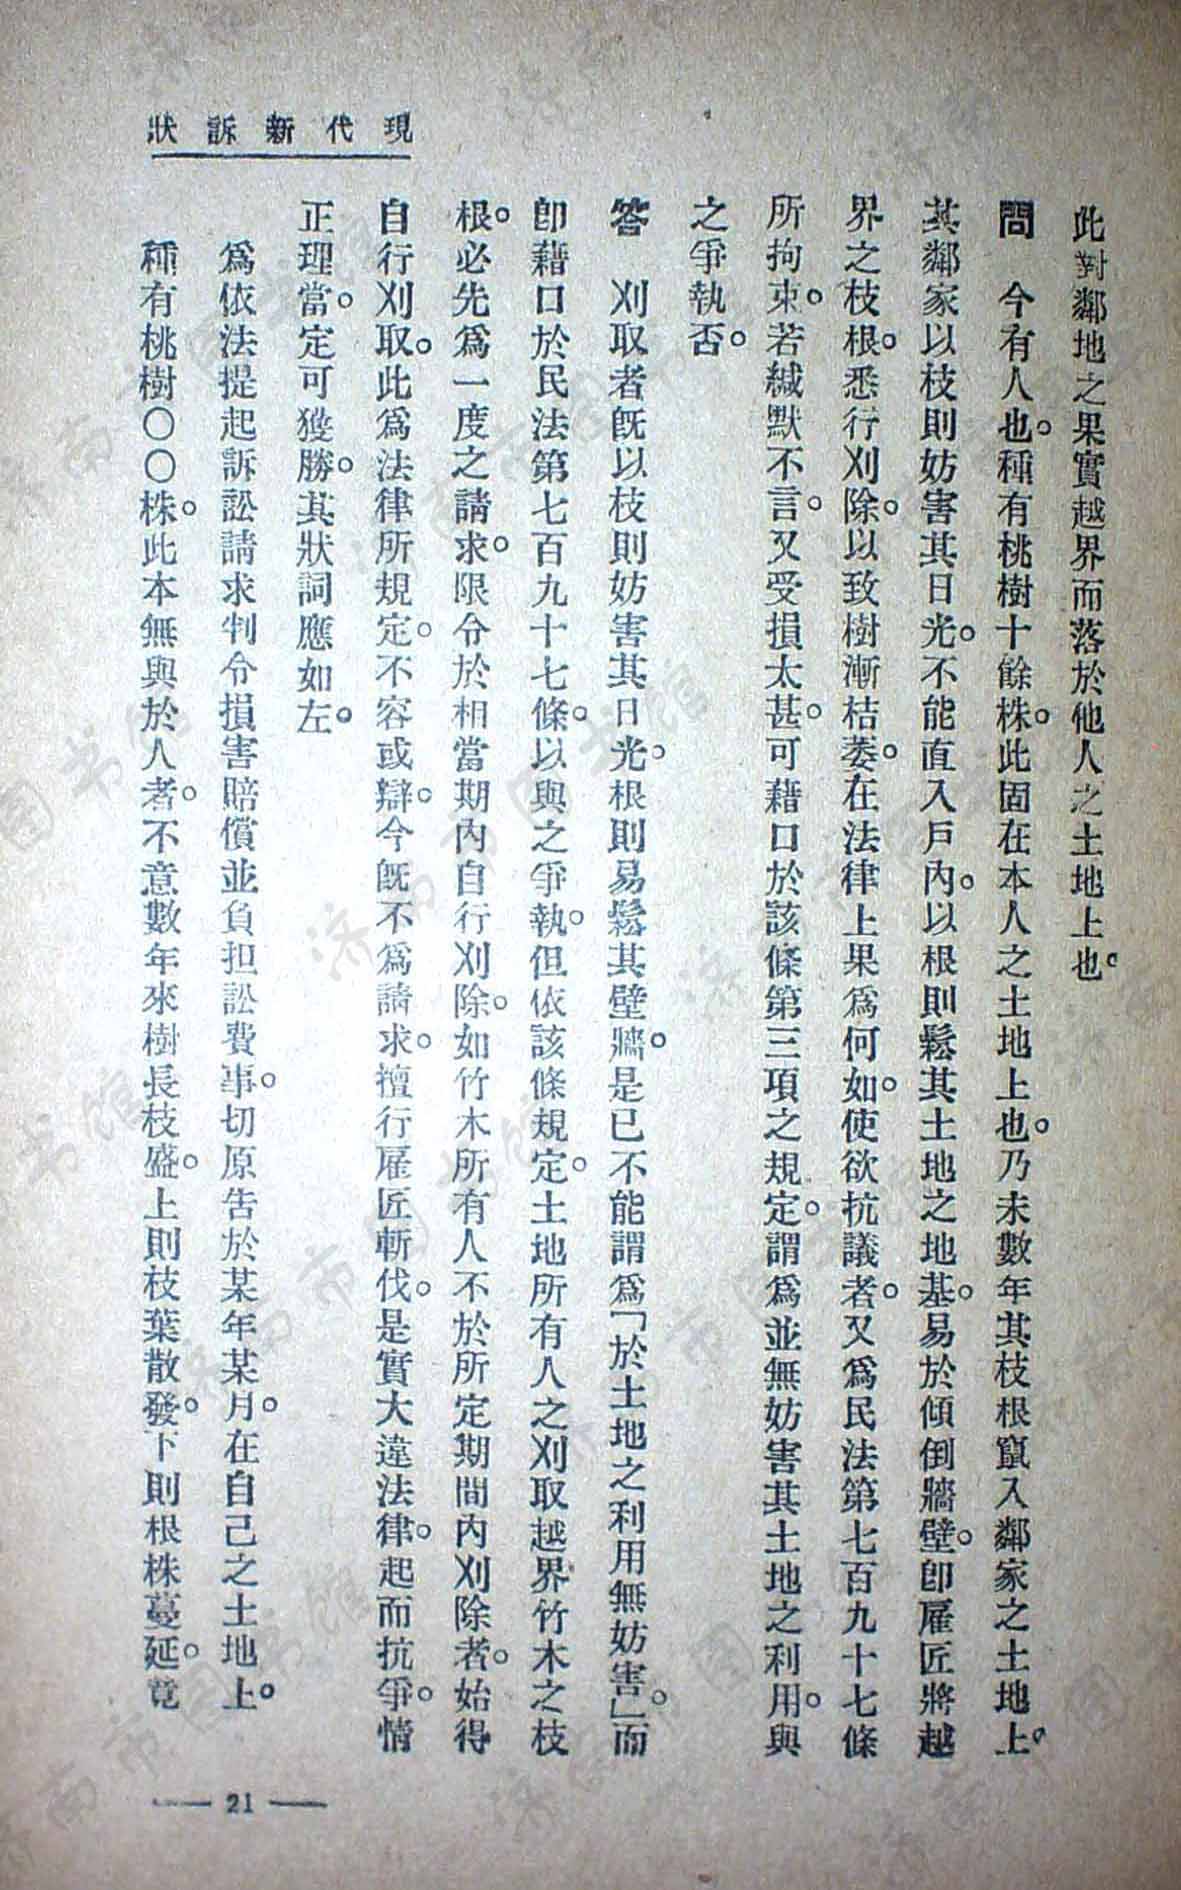 現代新訴狀
此對鄰地之果實越界而落於他人之土地上也。
問　今有人也。種有桃樹十餘株。此固在本人之土地上也。乃未數年其枝根竄入鄰家之土地上。
其鄰家以枝則妨害其日光。不能直入戶內。以根則鬆其土地之地基。易於傾倒牆壁。卽雇匠將越
界之枝根。悉行刈除。以致樹漸枯萎。在法律上果爲何如。使欲抗議者。又爲民法第七百九十七條
所拘束。若緘默不言。又受損太甚。可藉口於該條第三項之規定。謂爲並無妨害其土地之利用。與
之爭執否。
答　刈取者旣以枝則妨害其日光。根則易鬆其壁牆。是已不能謂爲「於土地之利用無妨害。」而
卽藉口於民法第七百九十七條。以與之爭執。但依該條規定。土地所有人之刈取越界竹木之枝
根。必先爲一度之請求。限令於相當期內自行刈除。如竹木所有人不於所定期間內刈除者。始得
自行刈取。此爲法律所規定。不容或辯。今旣不爲請求。擅行雇匠斬伐。是實大違法律。起而抗爭。情
正理當。定可獲勝。其狀詞應如左。
爲依法提起訴訟請求判令損害賠償並負担訟費事。切原告於某年某月。在自己之土地上。
種有桃樹〇〇株。此本無與於人者。不意數年來樹長枝盛。上則枝葉散發。下則根株蔓延。竟
— 21 —
济南市图书馆